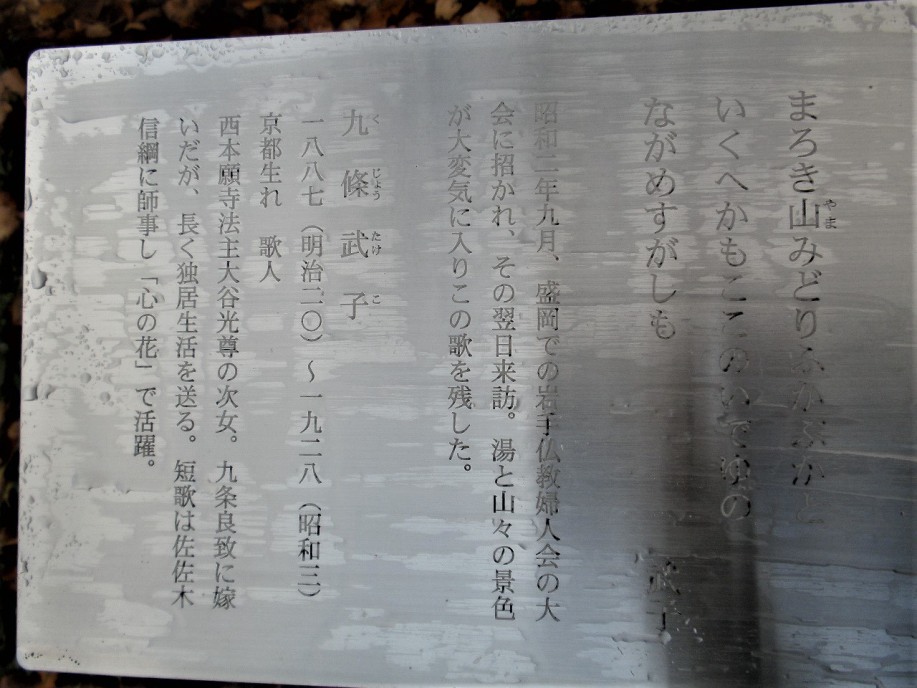 まろき山みどりふかぶかと
いくへかもここのいでゆの
ながめすがしも
武子
昭和二年九月、盛岡での岩手仏教婦人会の大
会に招かれ、その翌日来訪。湯と山々の景色
が大変気に入りこの歌を残した。
九條武子
一八八七（明治二〇）～一九二八（昭和三）
京都生れ　歌人
西本願寺法主大谷光尊の次女。九条良致に嫁
いだが、長く独居生活を送る。短歌は佐佐木
信綱に師事し「心の花」で活躍。